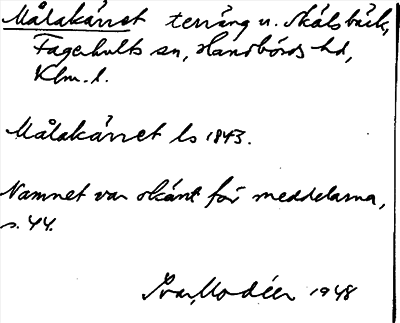 Målakärret terräng u. Skälsbäck,
Fagerhults sn, Handbörds hd,
Klm. l.
Målakärret ls 1843.
Namnet var okänt för meddelarna,
s. 44.
Ivar Modéer 1948